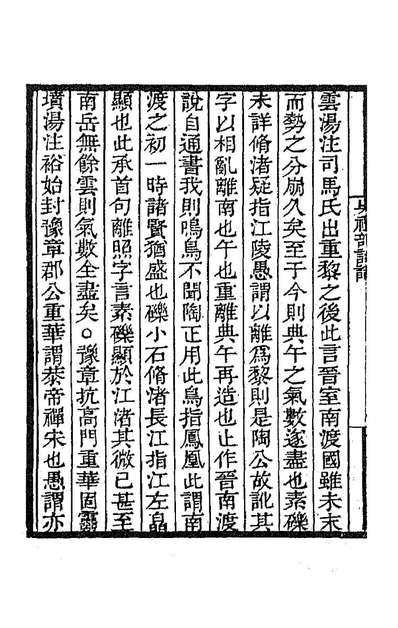 雲湯注司馬氏出重黎之後此言晉室南渡國雖未末
而勢之分崩久矣至于今則典午之氣數遂盡也素礫
未詳脩渚疑指江陵愚謂以離爲黎則是陶公故訛其
字以相亂離南也午也重離典午再造也止作晉南渡
說自通書我則鳴鳥不聞陶正用此鳥指鳳凰此謂南
渡之初一時諸賢猶盛也礫小石脩渚長江指江左皛
顯也此承首句離照字言素礫顯於江渚其微已甚至
南岳無餘雲則氣數全盡矣○豫章抗高門重華固靈
墳湯注裕始封豫章郡公重華謂恭帝禪宋也愚謂亦